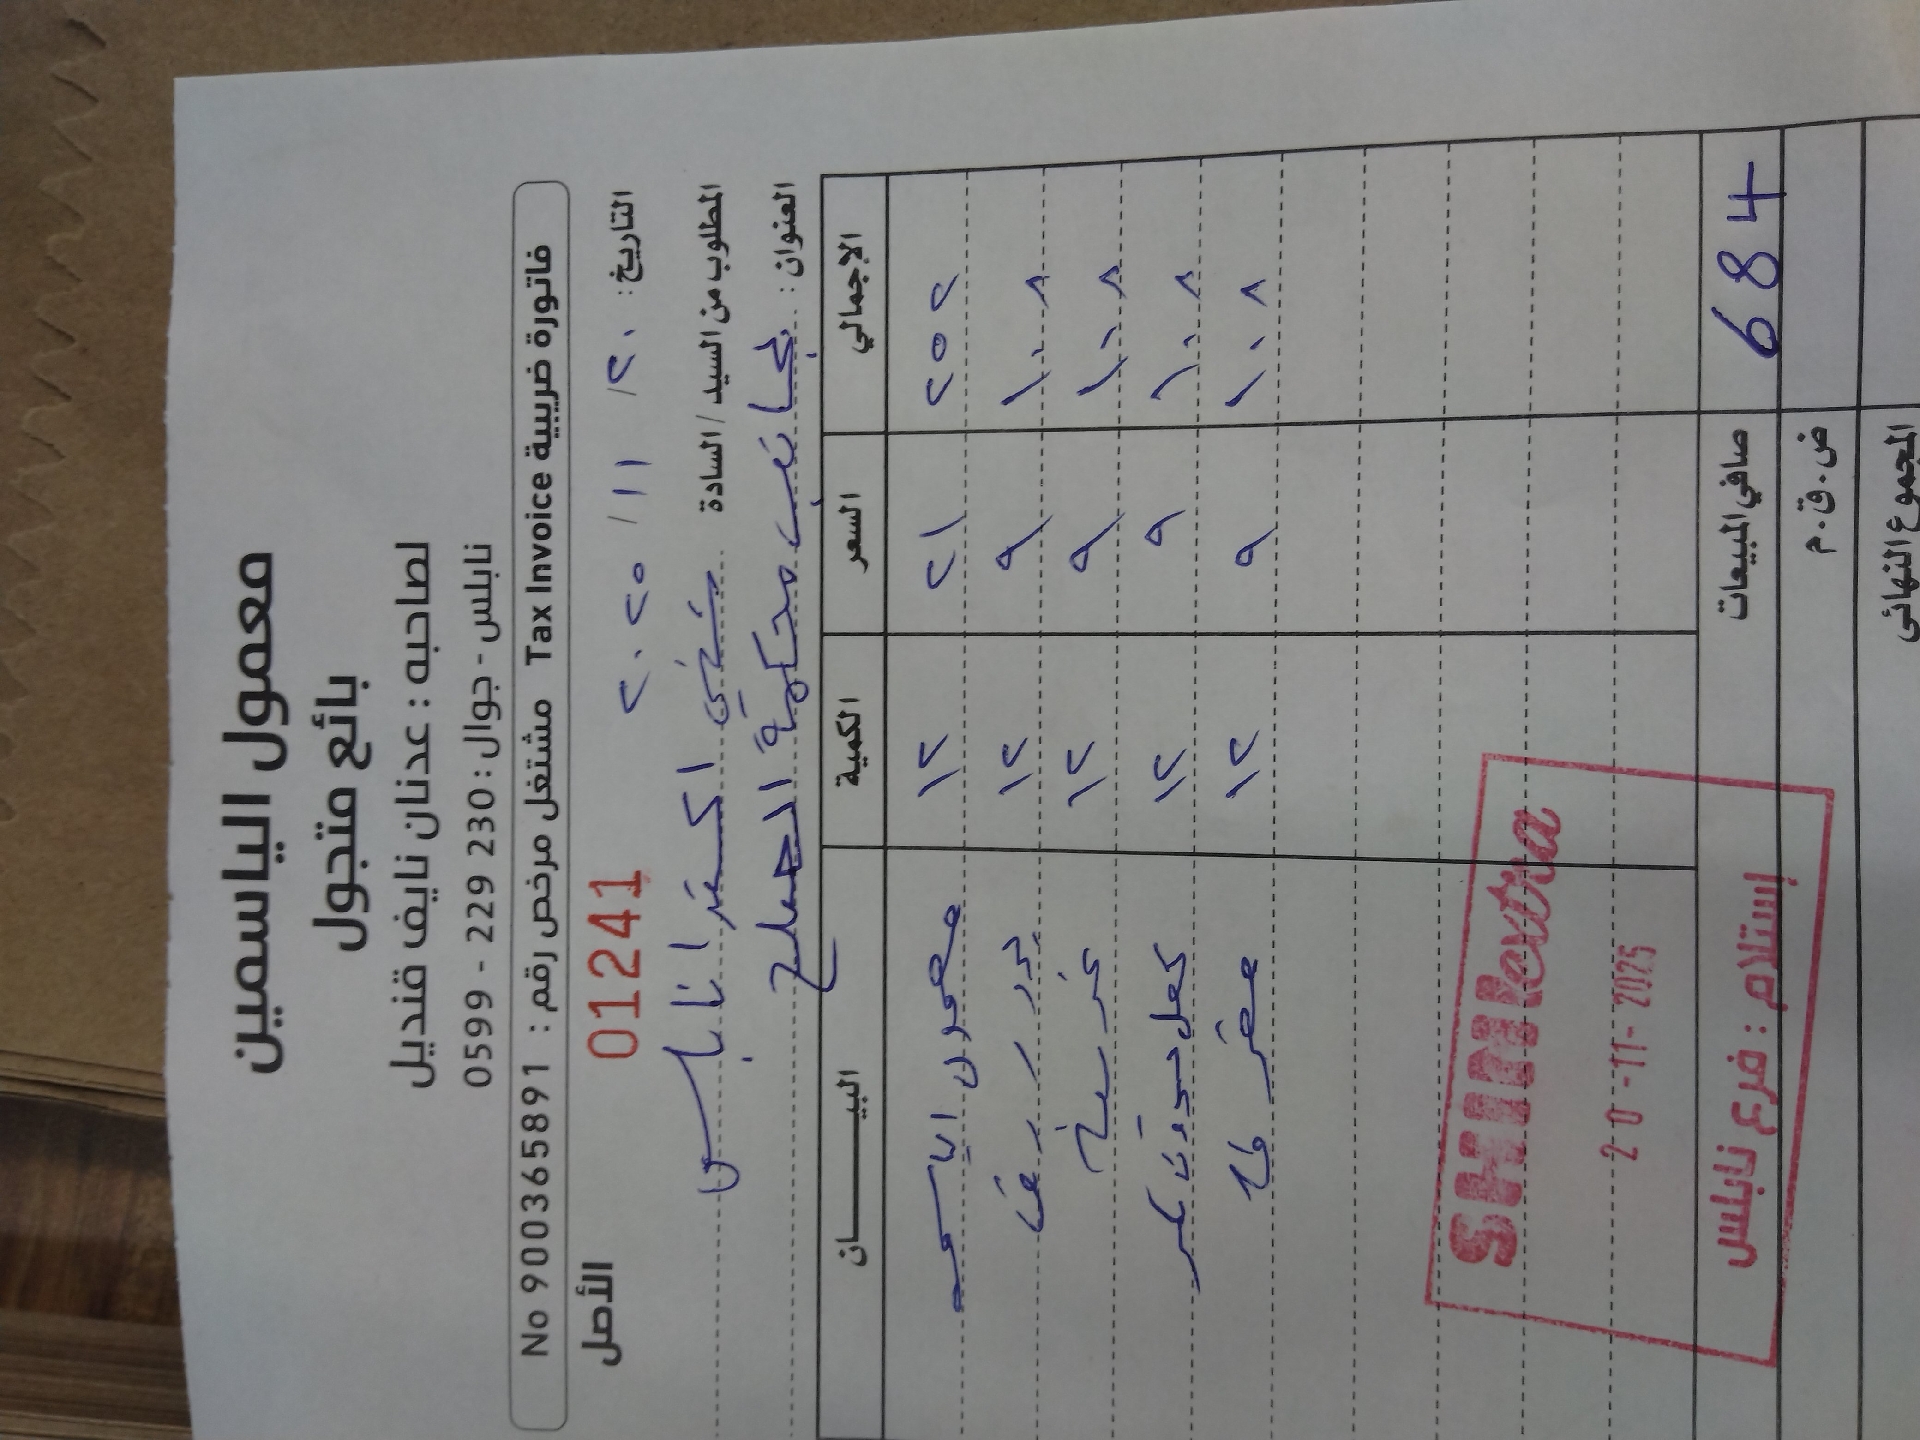 معمول الياسمين
بائع متجول
لصاحبه : عدنان نايف قنديل
نابلس - جوال : 230 229 - 0599
فاتورة ضريبية Tax Invoice مشتغل مرخص رقم : No 900365891
التاريخ : ٢٠ / ١١ / ٢٠٢٥ 01241 الأصل
المطلوب من السيد / السادة شني اكسترا نابلس
العنوان : بجانب محكمة الصلح
البيـــــــان الكمية السعر الإجمالي
معمول الياسمين ١٢ ٢١ ٢٥٢
١٢ ٩ ١٠٨
١٢ ٩ ١٠٨
١٢ ٩ ١٠٨
١٢ ٩ ١٠٨
SHINI extra
20 -11- 2025
إستلام : فرع نابلس
صافي المبيعات 684
ض . ق . م
المجموع النهائي